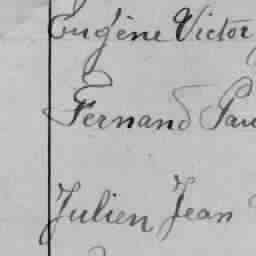 Eugène Victor
Fernand Pau
Julien Jean